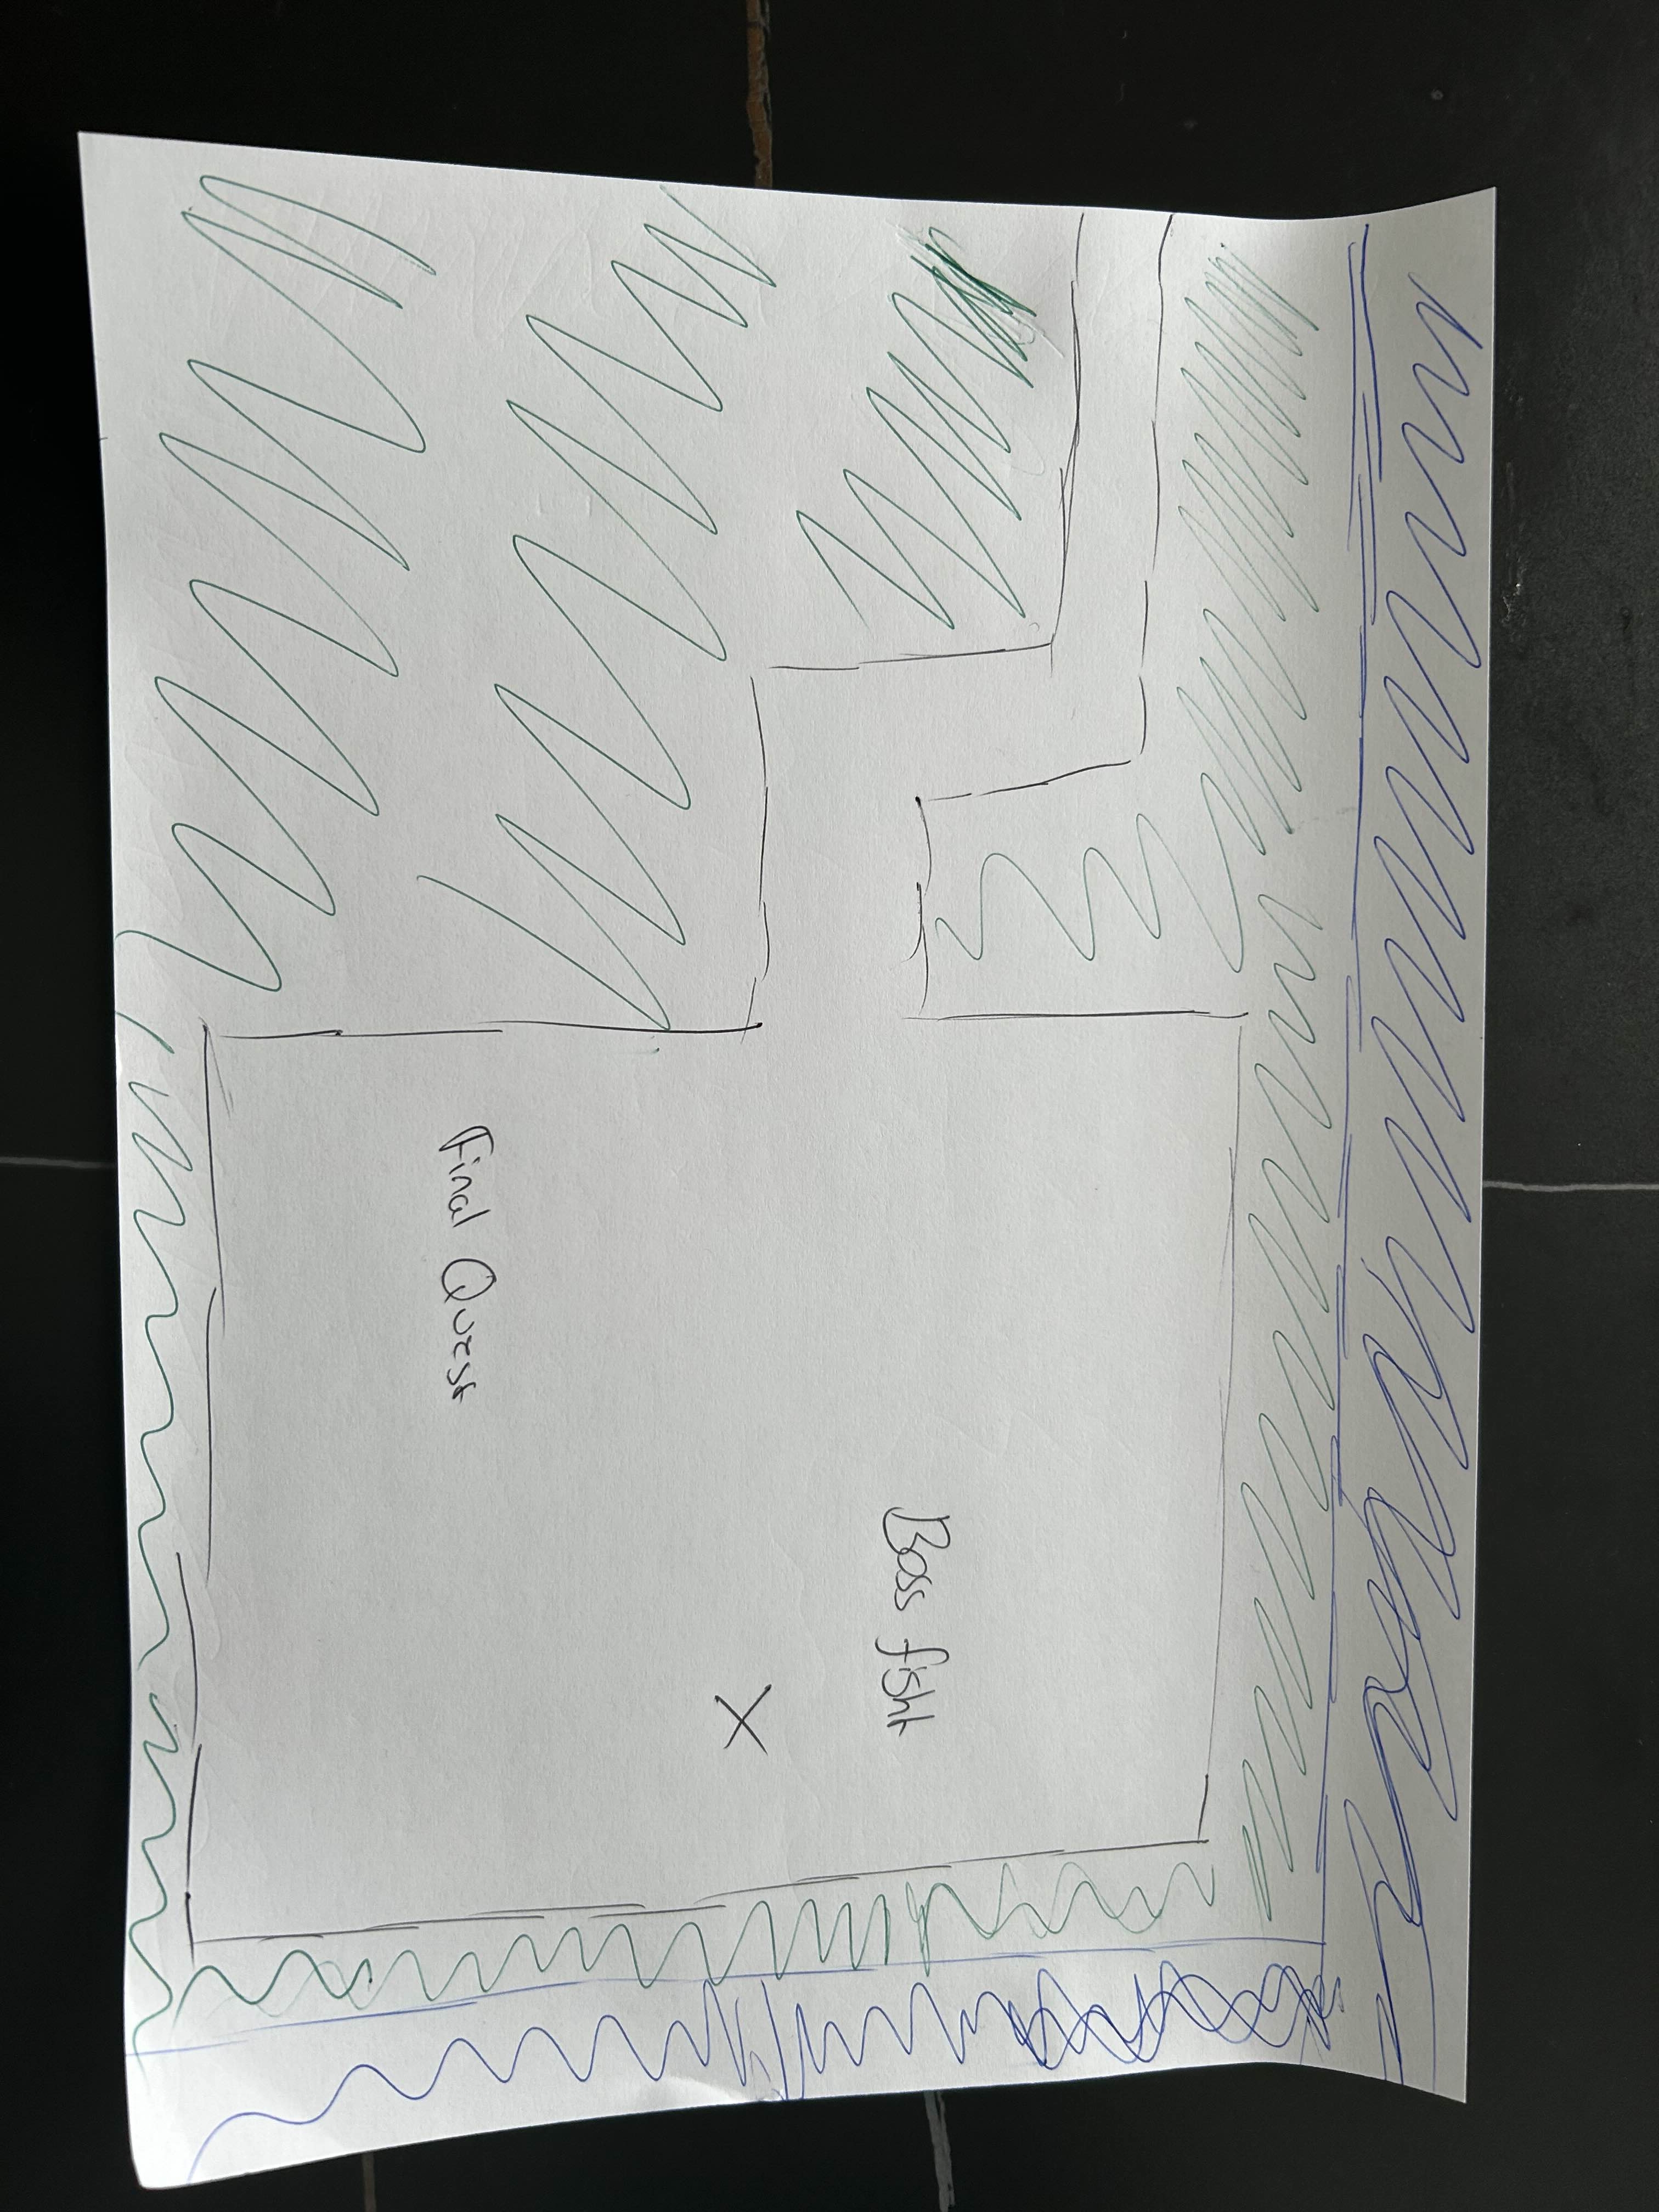 Boss fight
X
Final Quest